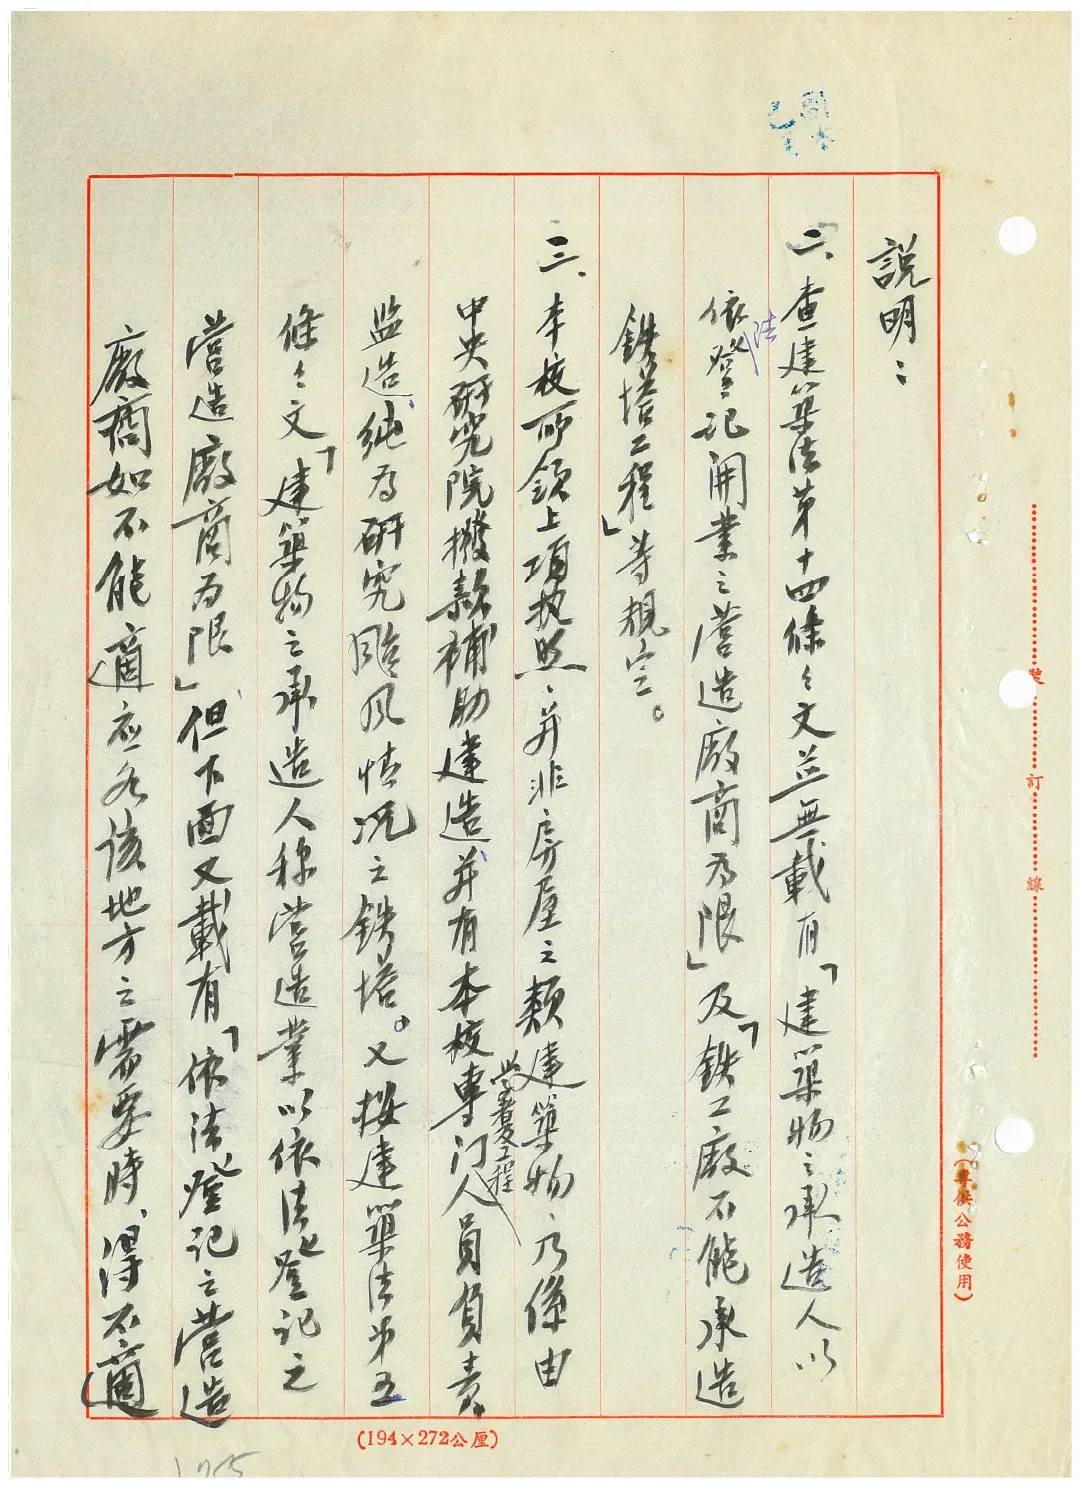 說明：
二、查建築法第十四條之文並無載有「建築物之承造人以
依法登記開業之營造廠商為限」及「鉄工廠不能承造
鉄塔工程」等規定。
三、本校所領上項执照、并非房屋之類建築物、乃係由
中央研究院撥款補助建造、并有本校專門學養工程人員負責
監造、純為研究颱风情況之鉄塔。又按建築法第五
條之文「建築物之承造人稱營造業以依法登記之
營造廠商為限」但下面又載有「依法登記之營造
廠商如不能適應各該地方之需要時、得不適
裝
訂
線
(專供公務使用)
(194×272公厘)